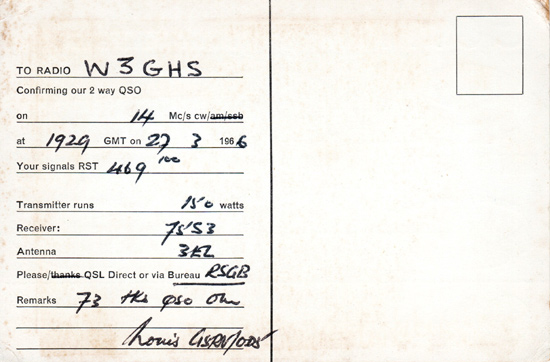 TO RADIO W3GHS
Confirming our 2 way QSO
on 14 Mc/s cw/am/ssb
at 1929 GMT on 27 3 1966
Your signals RST 469 100
Transmitter runs 150 watts
Receiver: 75S3
Antenna 3EL
Please/thanks QSL Direct or via Bureau RSGB
Remarks 73 tks QSO Om
Louis